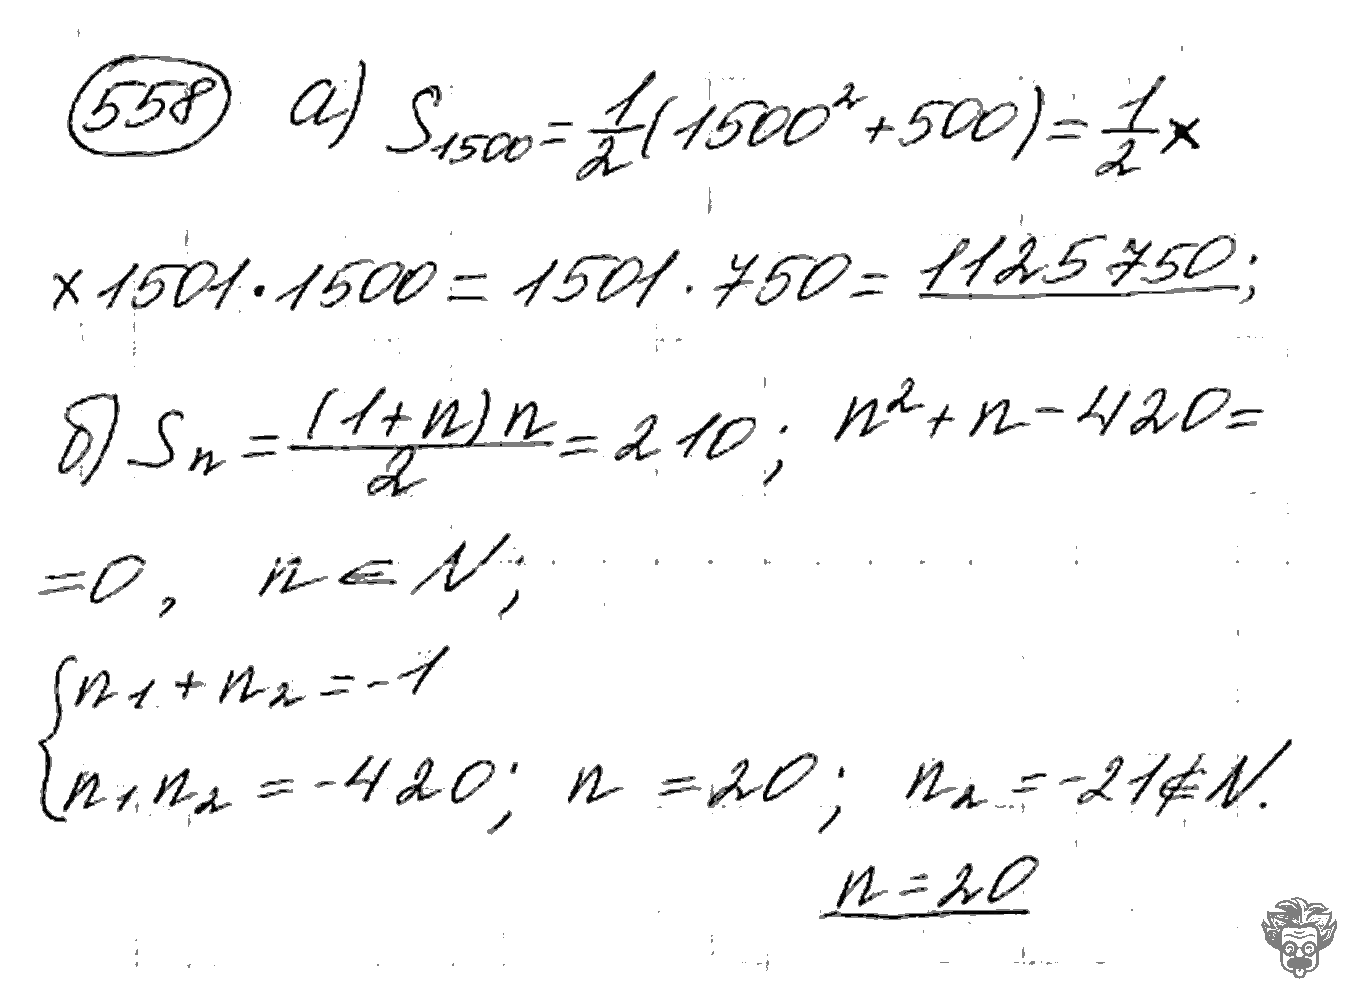 558 а) S₁₅₀₀ = 1/2 (1500² + 500) = 1/2 ×
× 1501 · 1500 = 1501 · 750 = 1125750;
б) Sₙ = (1 + n) n / 2 = 210; n² + n - 420 =
= 0, n ∈ N;
{ n₁ + n₂ = -1
n₁ n₂ = -420; n = 20; n₂ = -21 ∉ N.
n = 20